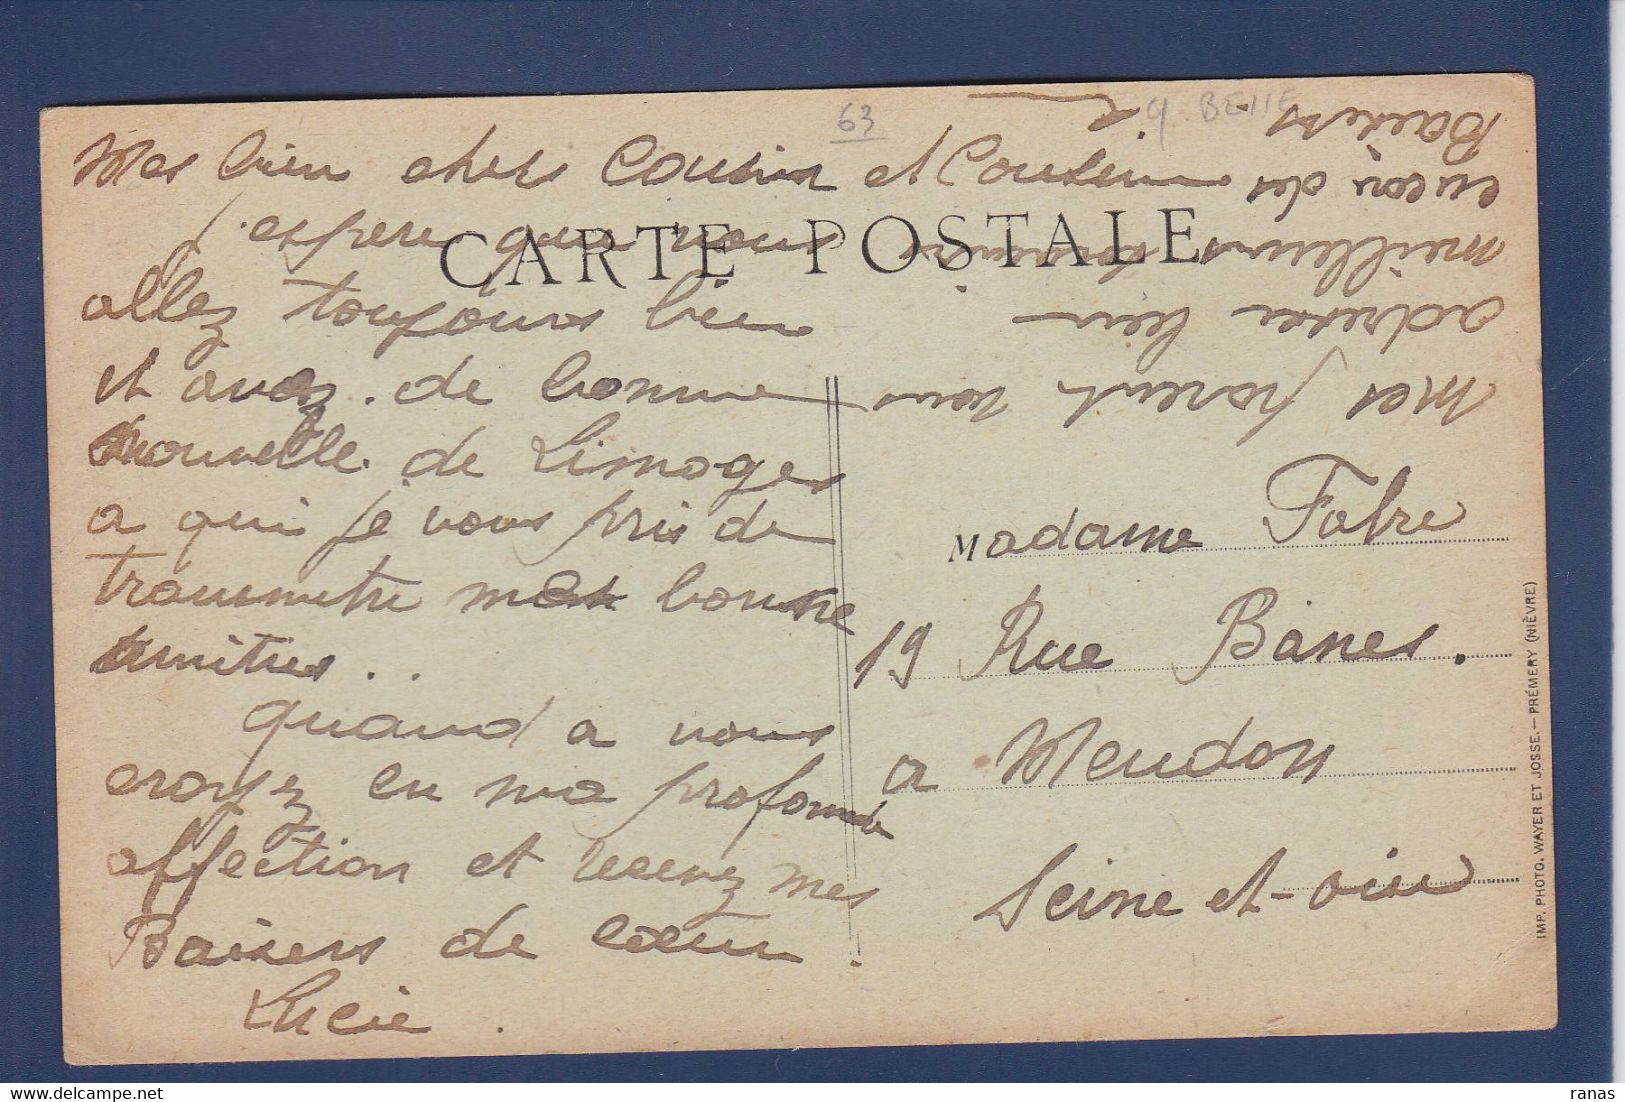 63
9. BELLE
Mes bien chers Cousin et Cousine
j'espere que vous
CARTE POSTALE
allez toujours bien
et avez de bonne
nouvelle de Limoges
a qui je vous pris de
transmetre mes bonne
amities..
quand a vous
croyez en ma profonde
affection et recevez mes
Baisers de cœur.
Lucie.
Mes parent vous
adresse bien
meilleurs
encor des
Baisers
Madame Fabre
19 Rue Banes.
a Meudon
Seine et-oise
IMP. PHOTO. WAYER ET JOSSE. — PRÉMERY (NIÈVRE)
delcampe.net
ranas